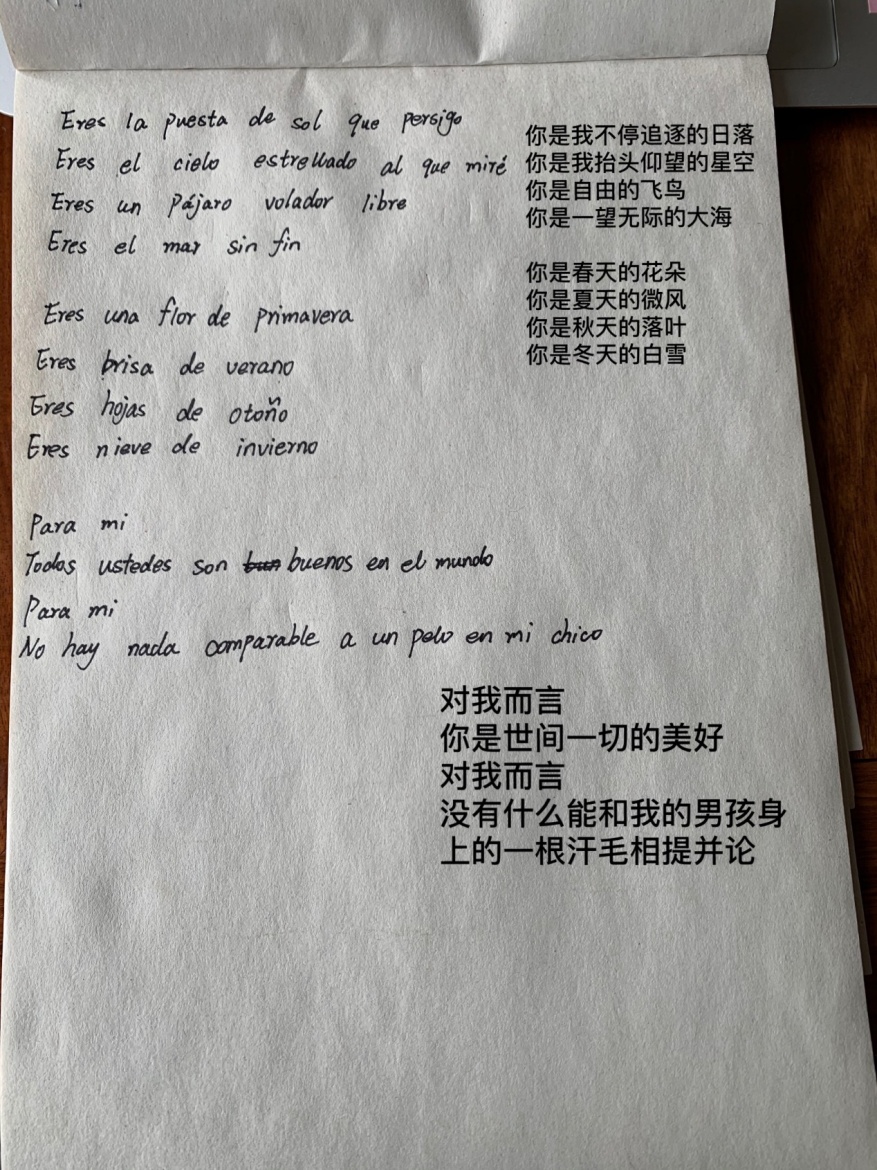 Eres la puesta de sol que persigo
Eres el cielo estrellado al que miré
Eres un Pájaro volador libre
Eres el mar sin fin
你是我不停追逐的日落
你是我抬头仰望的星空
你是自由的飞鸟
你是一望无际的大海
Eres una flor de primavera
Eres brisa de verano
Eres hojas de otoño
Eres nieve de invierno
你是春天的花朵
你是夏天的微风
你是秋天的落叶
你是冬天的白雪
Para mi
Todos ustedes son buenos en el mundo
Para mi
No hay nada comparable a un pelo en mi chico
对我而言
你是世间一切的美好
对我而言
没有什么能和我的男孩身
上的一根汗毛相提并论